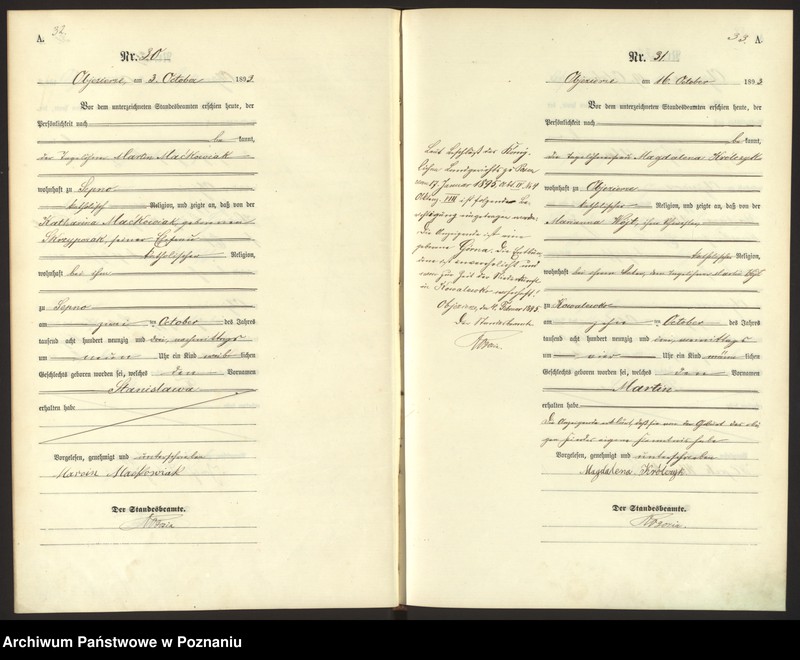 A. 32
Nr. 30
am 3. October 1893
Vor dem unterzeichneten Standesbeamten erschien heute, der
Persönlichkeit nach
be kannt,
der Tagelöhner Martin Maćkowiak
wohnhaft zu Sepno
katholischer Religion, und zeigte an, daß von der
Katharina Maćkowiak, geborenen
Skrzypczak, seiner Ehefrau
katholischer Religion,
wohnhaft bei ihm
zu Sepno
am zwei ten October des Jahres
tausend acht hundert neunzig und drei nachmittags
um neun Uhr ein Kind weib lichen
Geschlechts geboren worden sei, welches den Vornamen
Stanislawa
erhalten habe
Vorgelesen, genehmigt und unterschrieben
Marcin Maćkowiak
Der Standesbeamte.
33 A
Nr. 31
am 16. October 1893
Vor dem unterzeichneten Standesbeamten erschien heute, der
Persönlichkeit nach
be kannt,
die Magdalena Krolczyk
wohnhaft zu
katholischer Religion, und zeigte an, daß von der
Marianna Wojt,
katholischer Religion,
wohnhaft bei ihrem Vater, dem Tagelöhner Martin Wojt
zu Kowalewko
am zehn ten October des Jahres
tausend acht hundert neunzig und drei vormittags
um vier Uhr ein Kind männ lichen
Geschlechts geboren worden sei, welches den Vornamen
Martin
erhalten habe
Die Anzeigende erklärt, daß sie von der Geburt des
eigene Kenntniß habe
Vorgelesen, genehmigt und unterschrieben
Magdalena Królczyk
Der Standesbeamte.
Laut Beschluß des König-
lichen Landgerichts zu Posen
vom 17. Januar 1895,
ist folgende Be-
richtigung eingetragen worden:
Die Anzeigende ist eine
geborene Górna. Die Entbun-
dene ist unverehelicht und
war zur Zeit der Niederkunft
in Kowalewko wohnhaft.
den 4. Februar 1895.
Der Standesbeamte
Archiwum Państwowe w Poznaniu